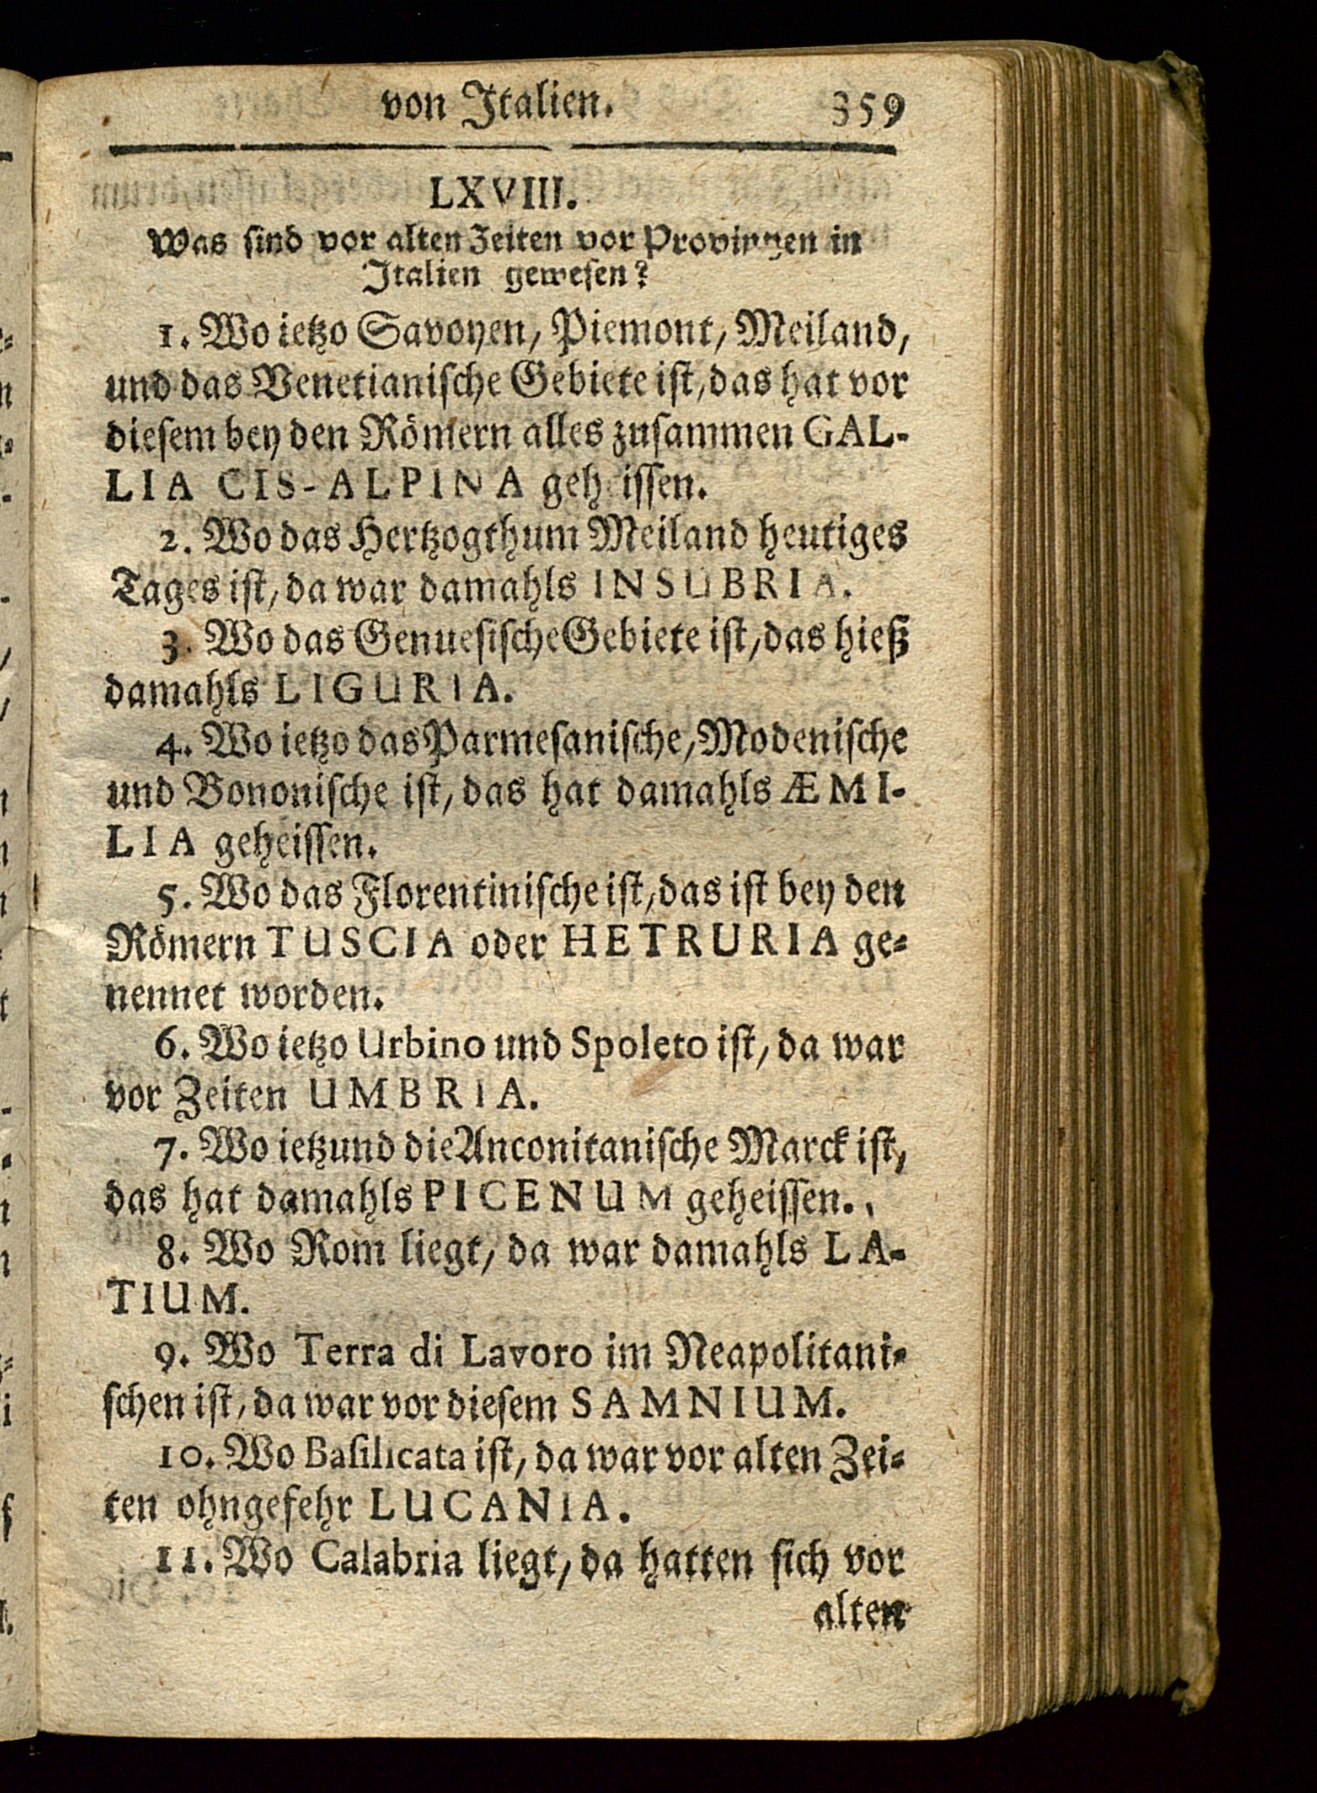 von Italien. 359
LXVIII.
Was sind vor alten Zeiten vor Provintzen in
Italien gewesen?
1. Wo ietzo Savoyen, Piemont, Meiland,
und das Venetianische Gebiete ist, das hat vor
diesem bey den Römern alles zusammen GAL-
LIA CIS-ALPINA geheissen.
2. Wo das Hertzogthum Meiland heutiges
Tages ist, da war damahls INSUBRIA.
3. Wo das Genuesische Gebiete ist, das hieß
damahls LIGURIA.
4. Wo ietzo das Parmesanische, Modenische
und Bononische ist, das hat damahls ÆMI-
LIA geheissen.
5. Wo das Florentinische ist, das ist bey den
Römern TUSCIA oder HETRURIA ge-
nennet worden.
6. Wo ietzo Urbino und Spoleto ist, da war
vor Zeiten UMBRIA.
7. Wo ietzund die Anconitanische Marck ist,
das hat damahls PICENUM geheissen.
8. Wo Rom liegt, da war damahls LA-
TIUM.
9. Wo Terra di Lavoro im Neapolitani-
schen ist, da war vor diesem SAMNIUM.
10. Wo Basilicata ist, da war vor alten Zei-
ten ohngefehr LUCANIA.
11. Wo Calabria liegt, da hatten sich vor
alten